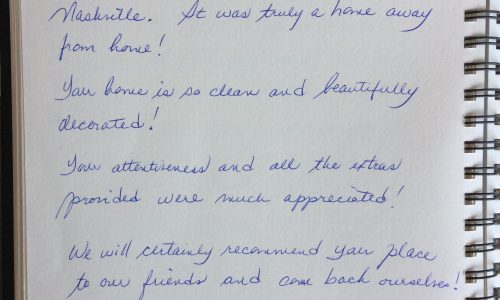 Nashville. It was truly a home away
from home!
Your home is so clean and beautifully
decorated!
Your attentiveness and all the extras
provided were much appreciated!
We will certainly recommend your place
to our friends and come back ourselves!